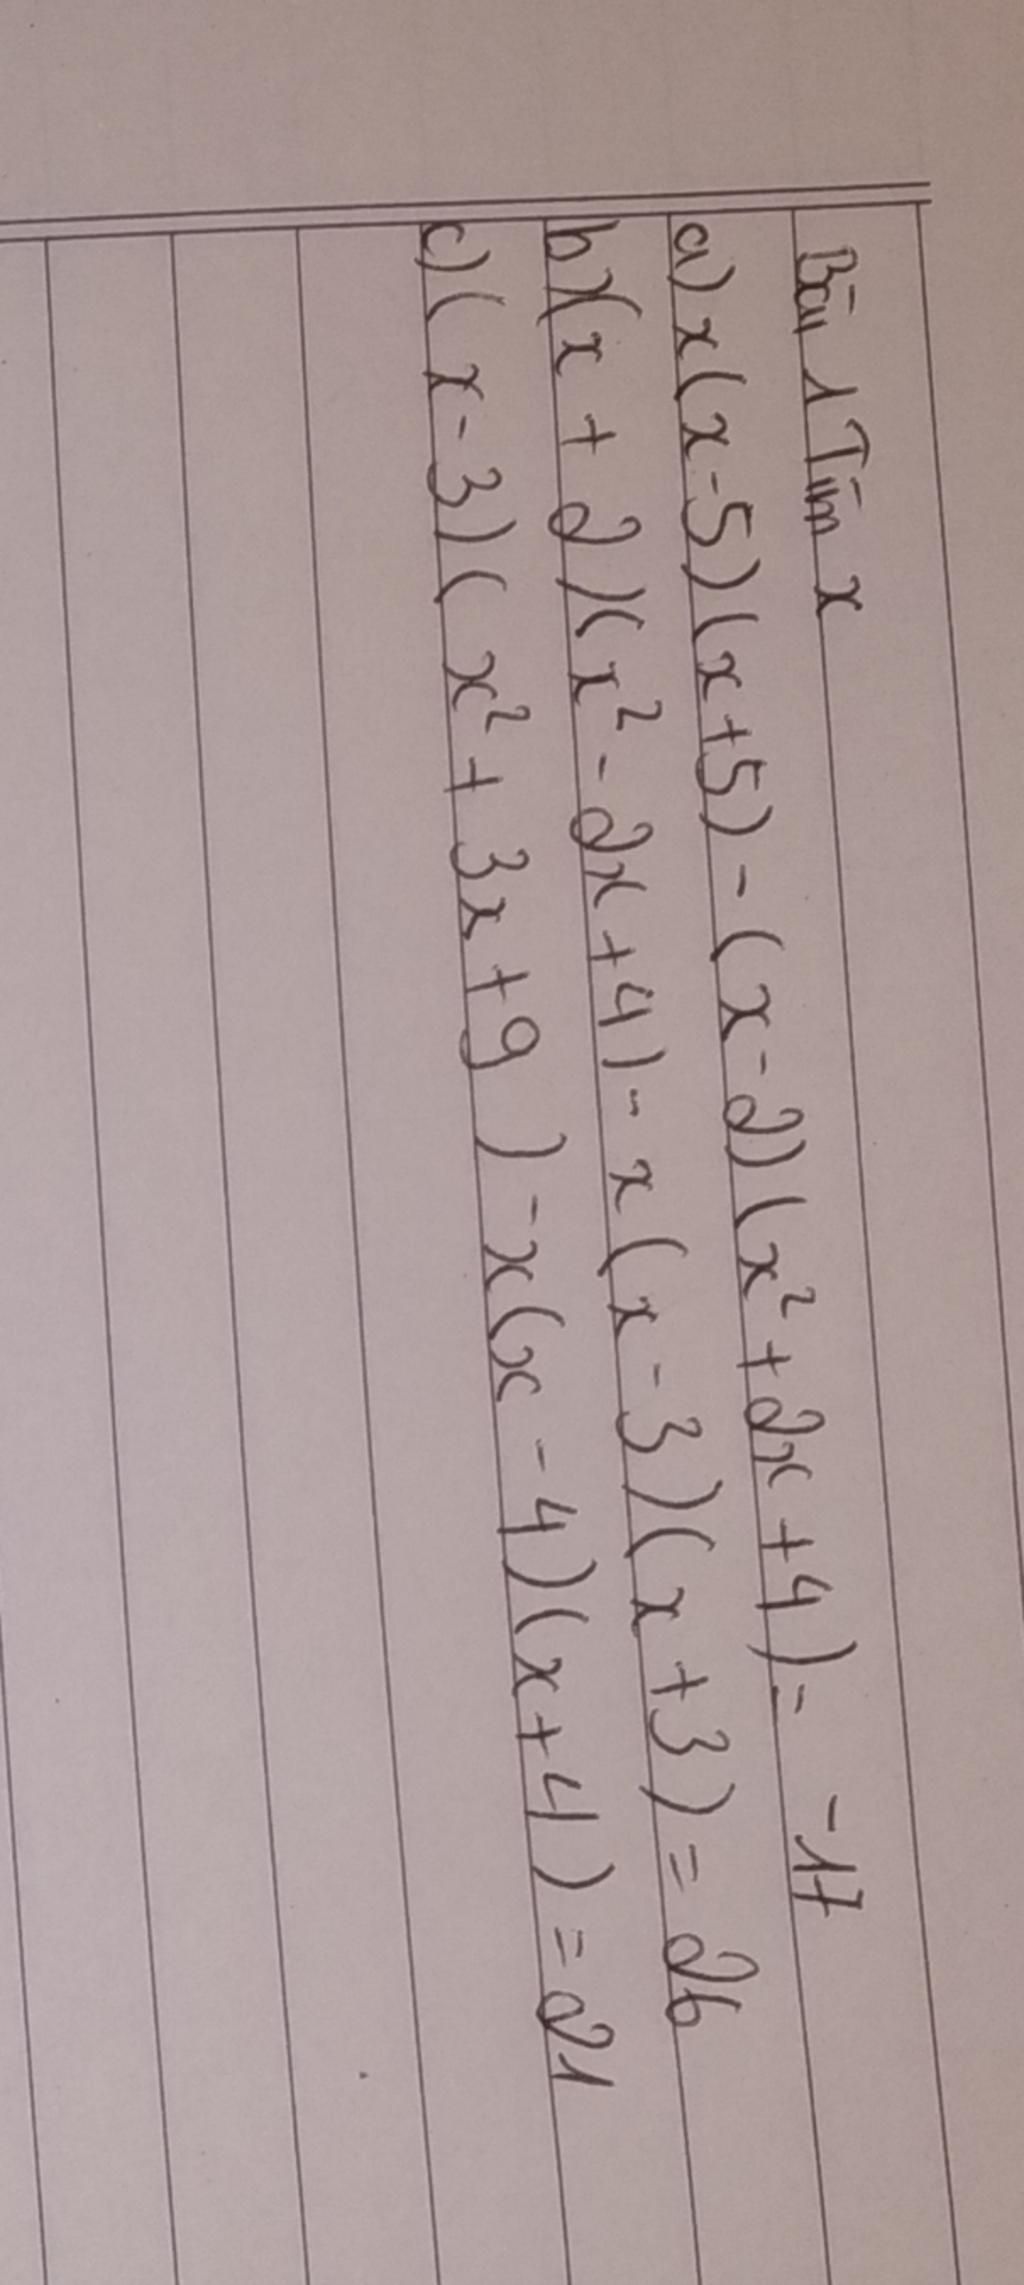 Bài 1 Tìm x
a) x(x-5)(x+5) - (x-2)(x²+2x+4) = -17
b) (x+2)(x²-2x+4) - x(x-3)(x+3) = 26
c) (x-3)(x²+3x+9) - x(x-4)(x+4) = 21